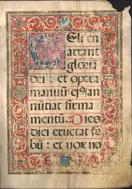 Celi en
arrant
gloriã
dei: et opera
manuũ eiꝰ an
nũtiat firma
mentũ. Dies
diei eructat
bũ: et nox no